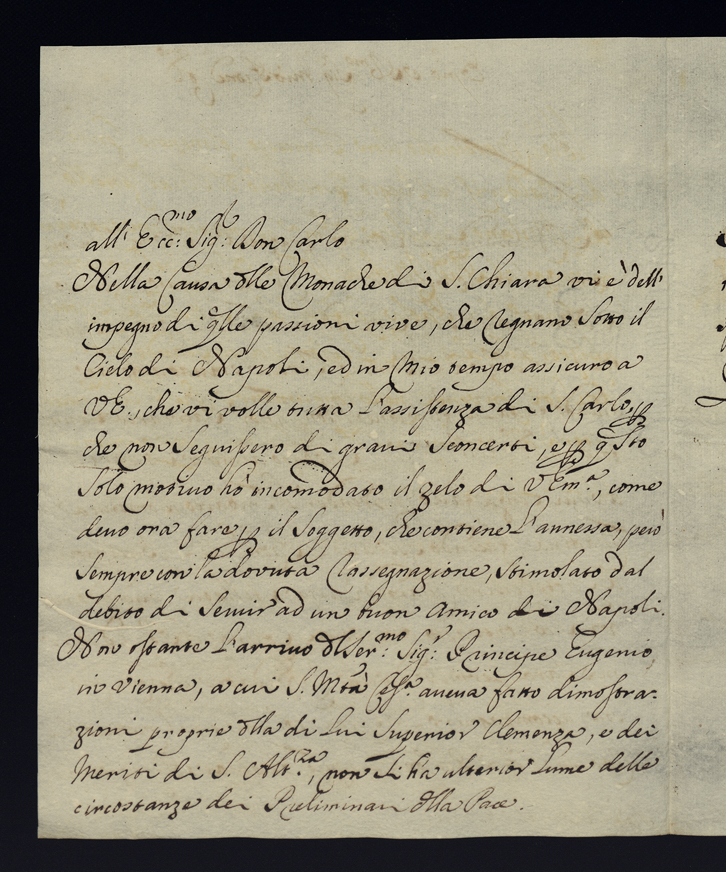 all' Ecc:mo Sig:r Don Carlo
Nella Causa dlle Monache di S. Chiara vi è dell'
impegno di qlle passioni vive, che regnano sotto il
Cielo di Napoli, ed in mio tempo assicuro a
VE., che vi volle tutta l'assistenza di S. Carlo, p
che non seguissero di gravi sconcerti, e p qsto
solo motivo hò incomodato il zelo di VEm:a, come
devo ora fare p il soggetto, che contiene l'annessa, però
sempre con la dovuta rassegnazione, stimolato dal
debito di servir ad un buon Amico di Napoli.
Non ostante l'arrivo dl Ser:mo Sig:r Principe Eugenio
in Vienna, a cui S. Mtà Ces:a aveva fatto dimostra-
zioni proprie dlla di Lui Superior Clemenza, e dei
Meriti di S. Alt:za, non si hà ulterior lume delle
circostanze dei Preliminari dlla Pace.